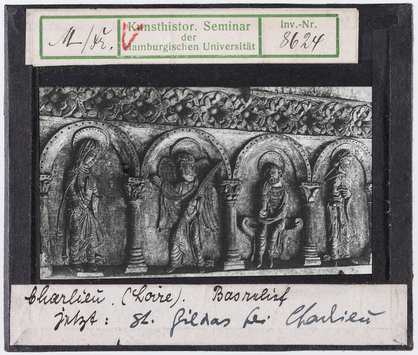 M/fr.
Kunsthistor. Seminar
der
Hamburgischen Universität
Inv.-Nr.
8624
Charlieu. (Loire). Basrelief
jetzt: St. Gildas bei Charlieu